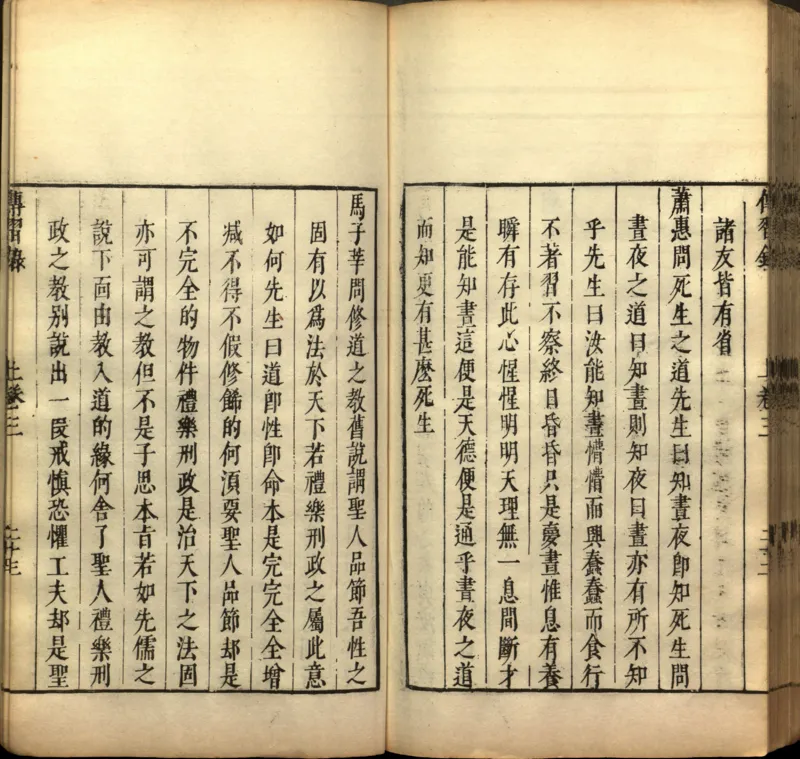 諸友皆有省
蕭惠問死生之道先生曰知晝夜即知死生問
晝夜之道曰知晝則知夜曰晝亦有所不知
乎先生曰汝能知晝懵懵而興蠢蠢而食行
不著習不察終日昏昏只是夢晝惟息有養
瞬有存此心惺惺明明天理無一息間斷才
是能知晝這便是天德便是通乎晝夜之道
而知更有甚麽死生
馬子莘問修道之教舊說謂聖人品節吾性之
固有以爲法於天下若禮樂刑政之屬此意
如何先生曰道即性即命本是完完全全增
减不得不假修飾的何湏要聖人品節却是
不完全的物件禮樂刑政是治天下之法固
亦可謂之教但不是子思本旨若如先儒之
說下面由教入道的緣何舍了聖人禮樂刑
政之教别說出一叚戒慎恐懼工夫却是聖
傳習錄 上卷三